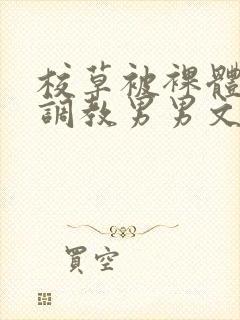 校草被裸體
調教男男文
買空